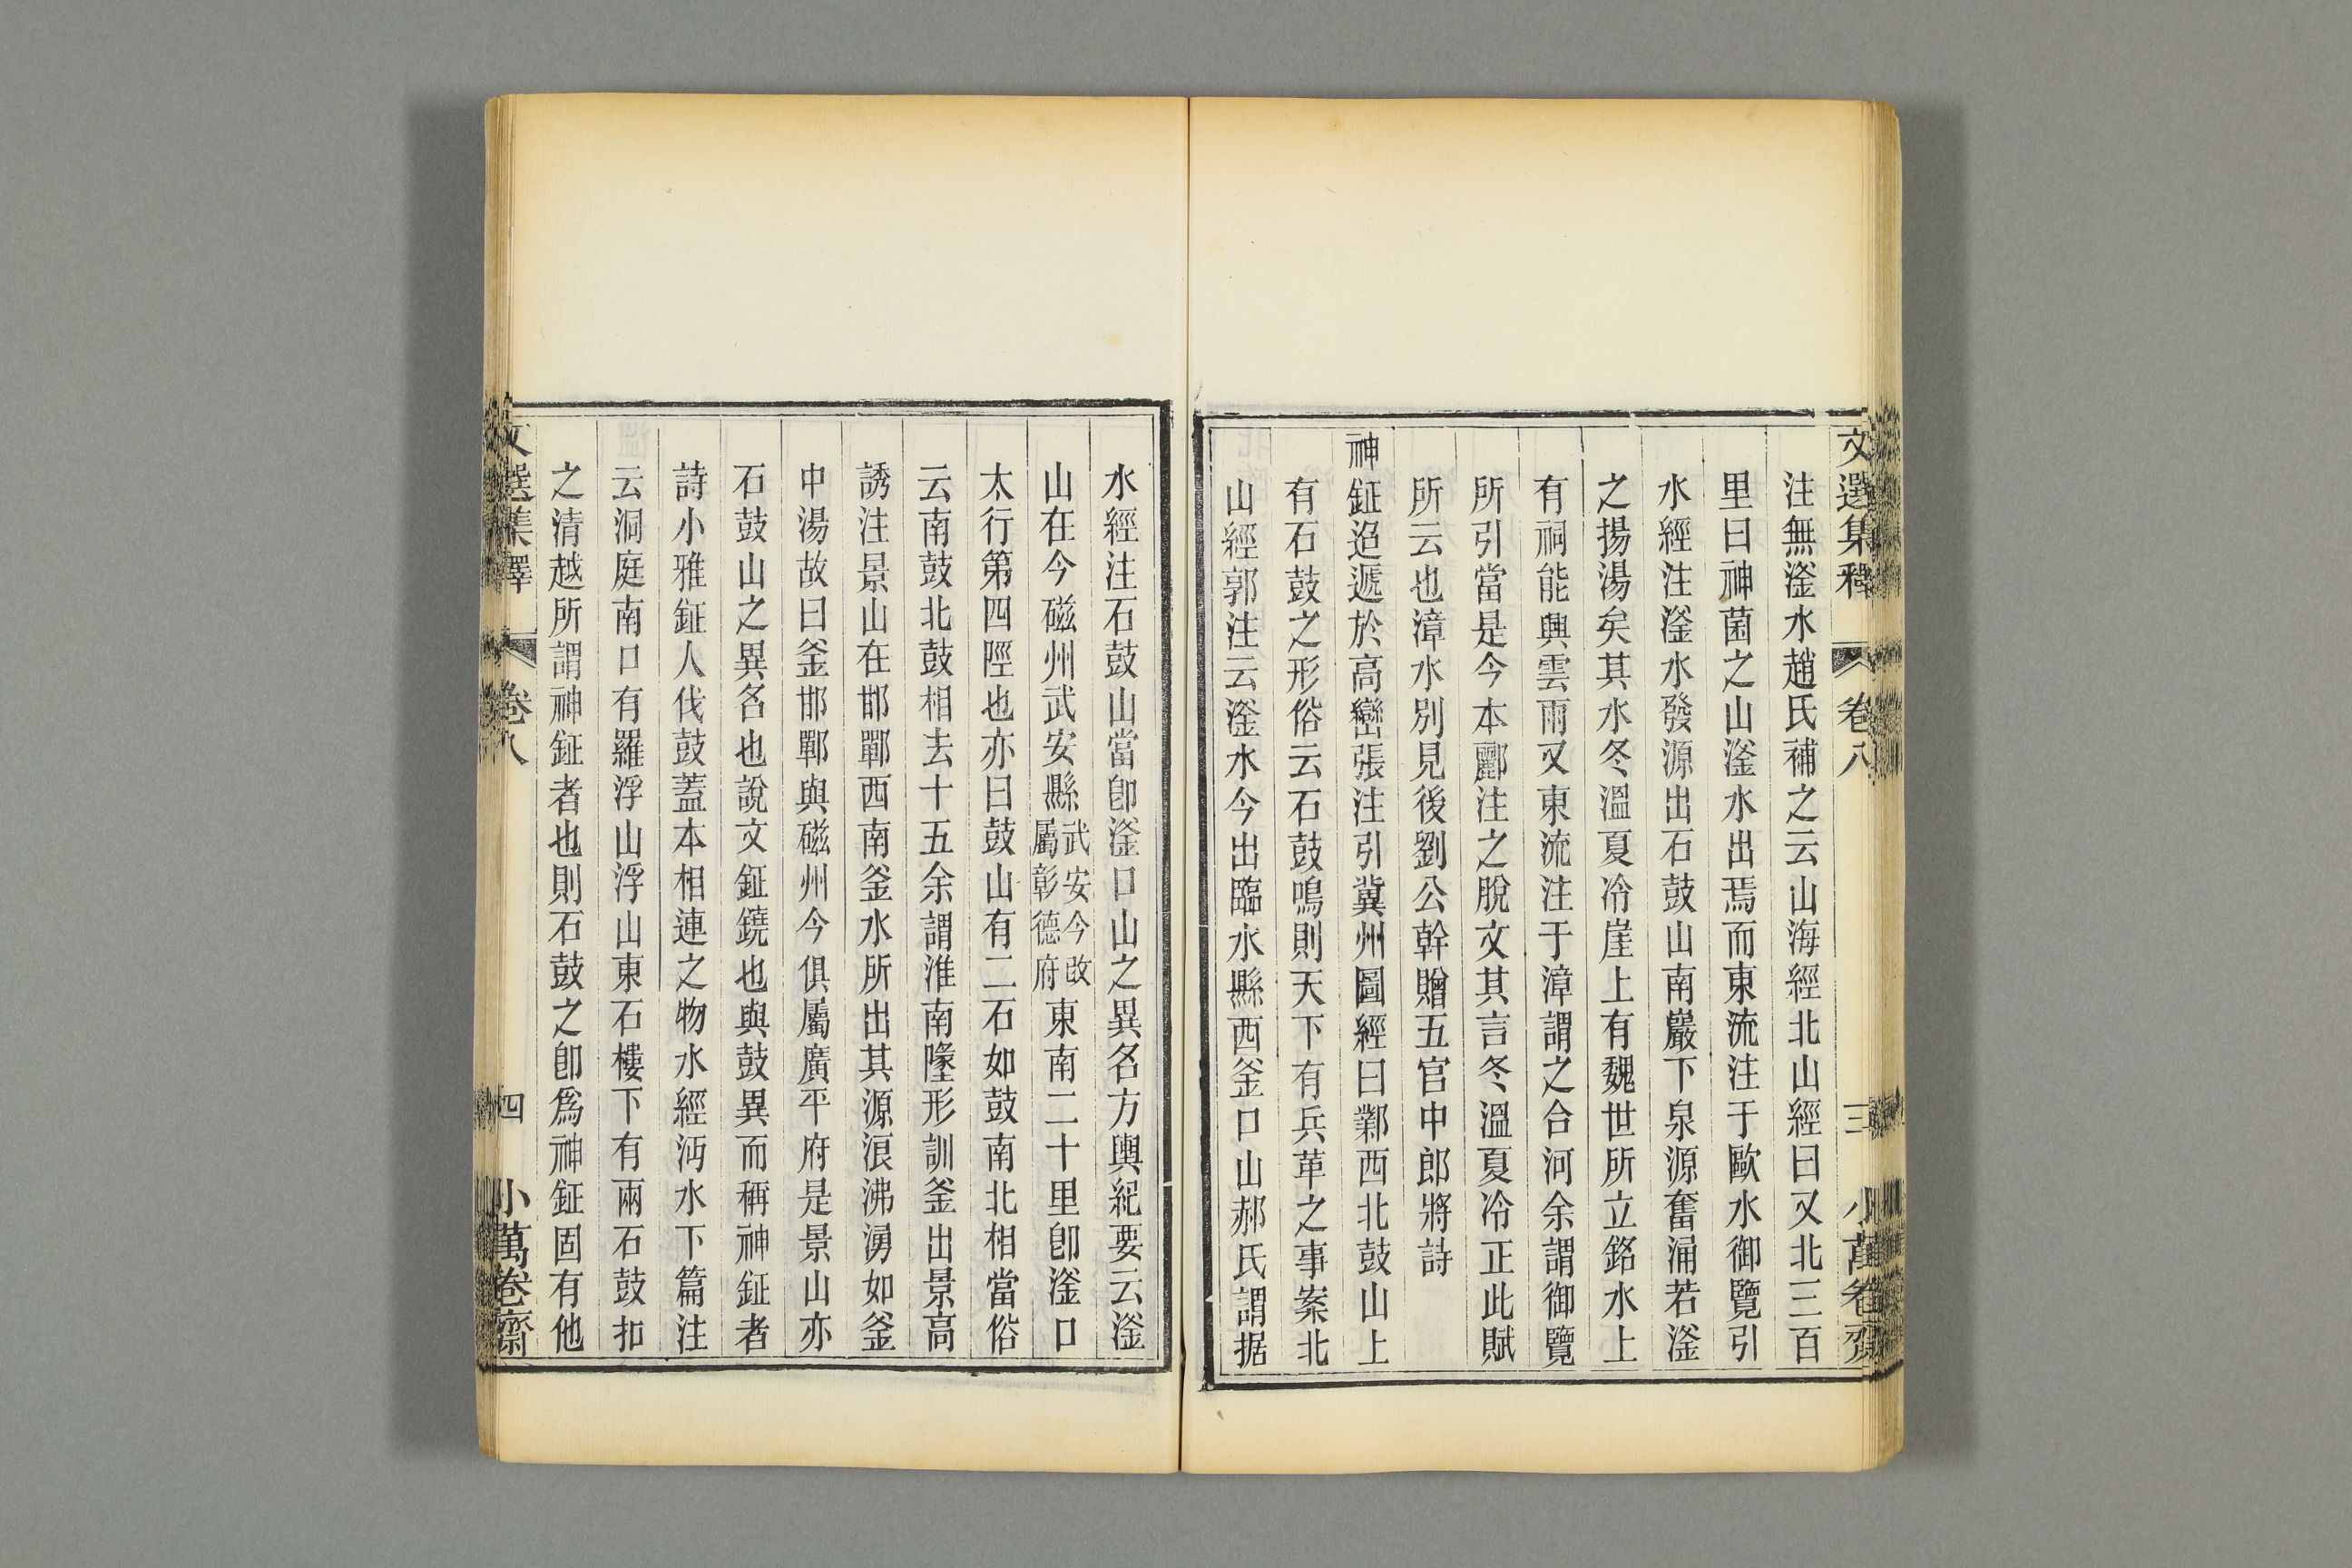 文選集釋 卷八 三 小萬卷齋
注無滏水趙氏補之云山海經北山經曰又北三百
里曰神菌之山滏水出焉而東流注于歐水御覽引
水經注滏水發源出石鼓山南巖下泉源奮涌若滏
之揚湯矣其水冬溫夏冷崖上有魏世所立銘水上
有祠能興雲雨又東流注于漳謂之合河余謂御覽
所引當是今本酈注之脫文其言冬溫夏冷正此賦
所云也漳水別見後劉公幹贈五官中郎將詩
神鉦迢遞於高巒張注引冀州圖經曰鄴西北鼓山上
有石鼓之形俗云石鼓鳴則天下有兵革之事案北
山經郭注云滏水今出臨水縣西釜口山郝氏謂据
水經注石鼓山當卽滏口山之異名方輿紀要云滏
山在今磁州武安縣武安今改屬彰德府東南二十里卽滏口
太行第四陘也亦曰鼓山有二石如鼓南北相當俗
云南鼓北鼓相去十五余謂淮南墬形訓釜出景高
誘注景山在邯鄲西南釜水所出其源浪沸湧如釜
中湯故曰釜邯鄲與磁州今俱屬廣平府是景山亦
石鼓山之異名也說文鉦鐃也與鼓異而稱神鉦者
詩小雅鉦人伐鼓蓋本相連之物水經沔水下篇注
云洞庭南口有羅浮山浮山東石樓下有兩石鼓扣
之清越所謂神鉦者也則石鼓之卽爲神鉦固有他
文選集釋 卷八 四 小萬卷齋